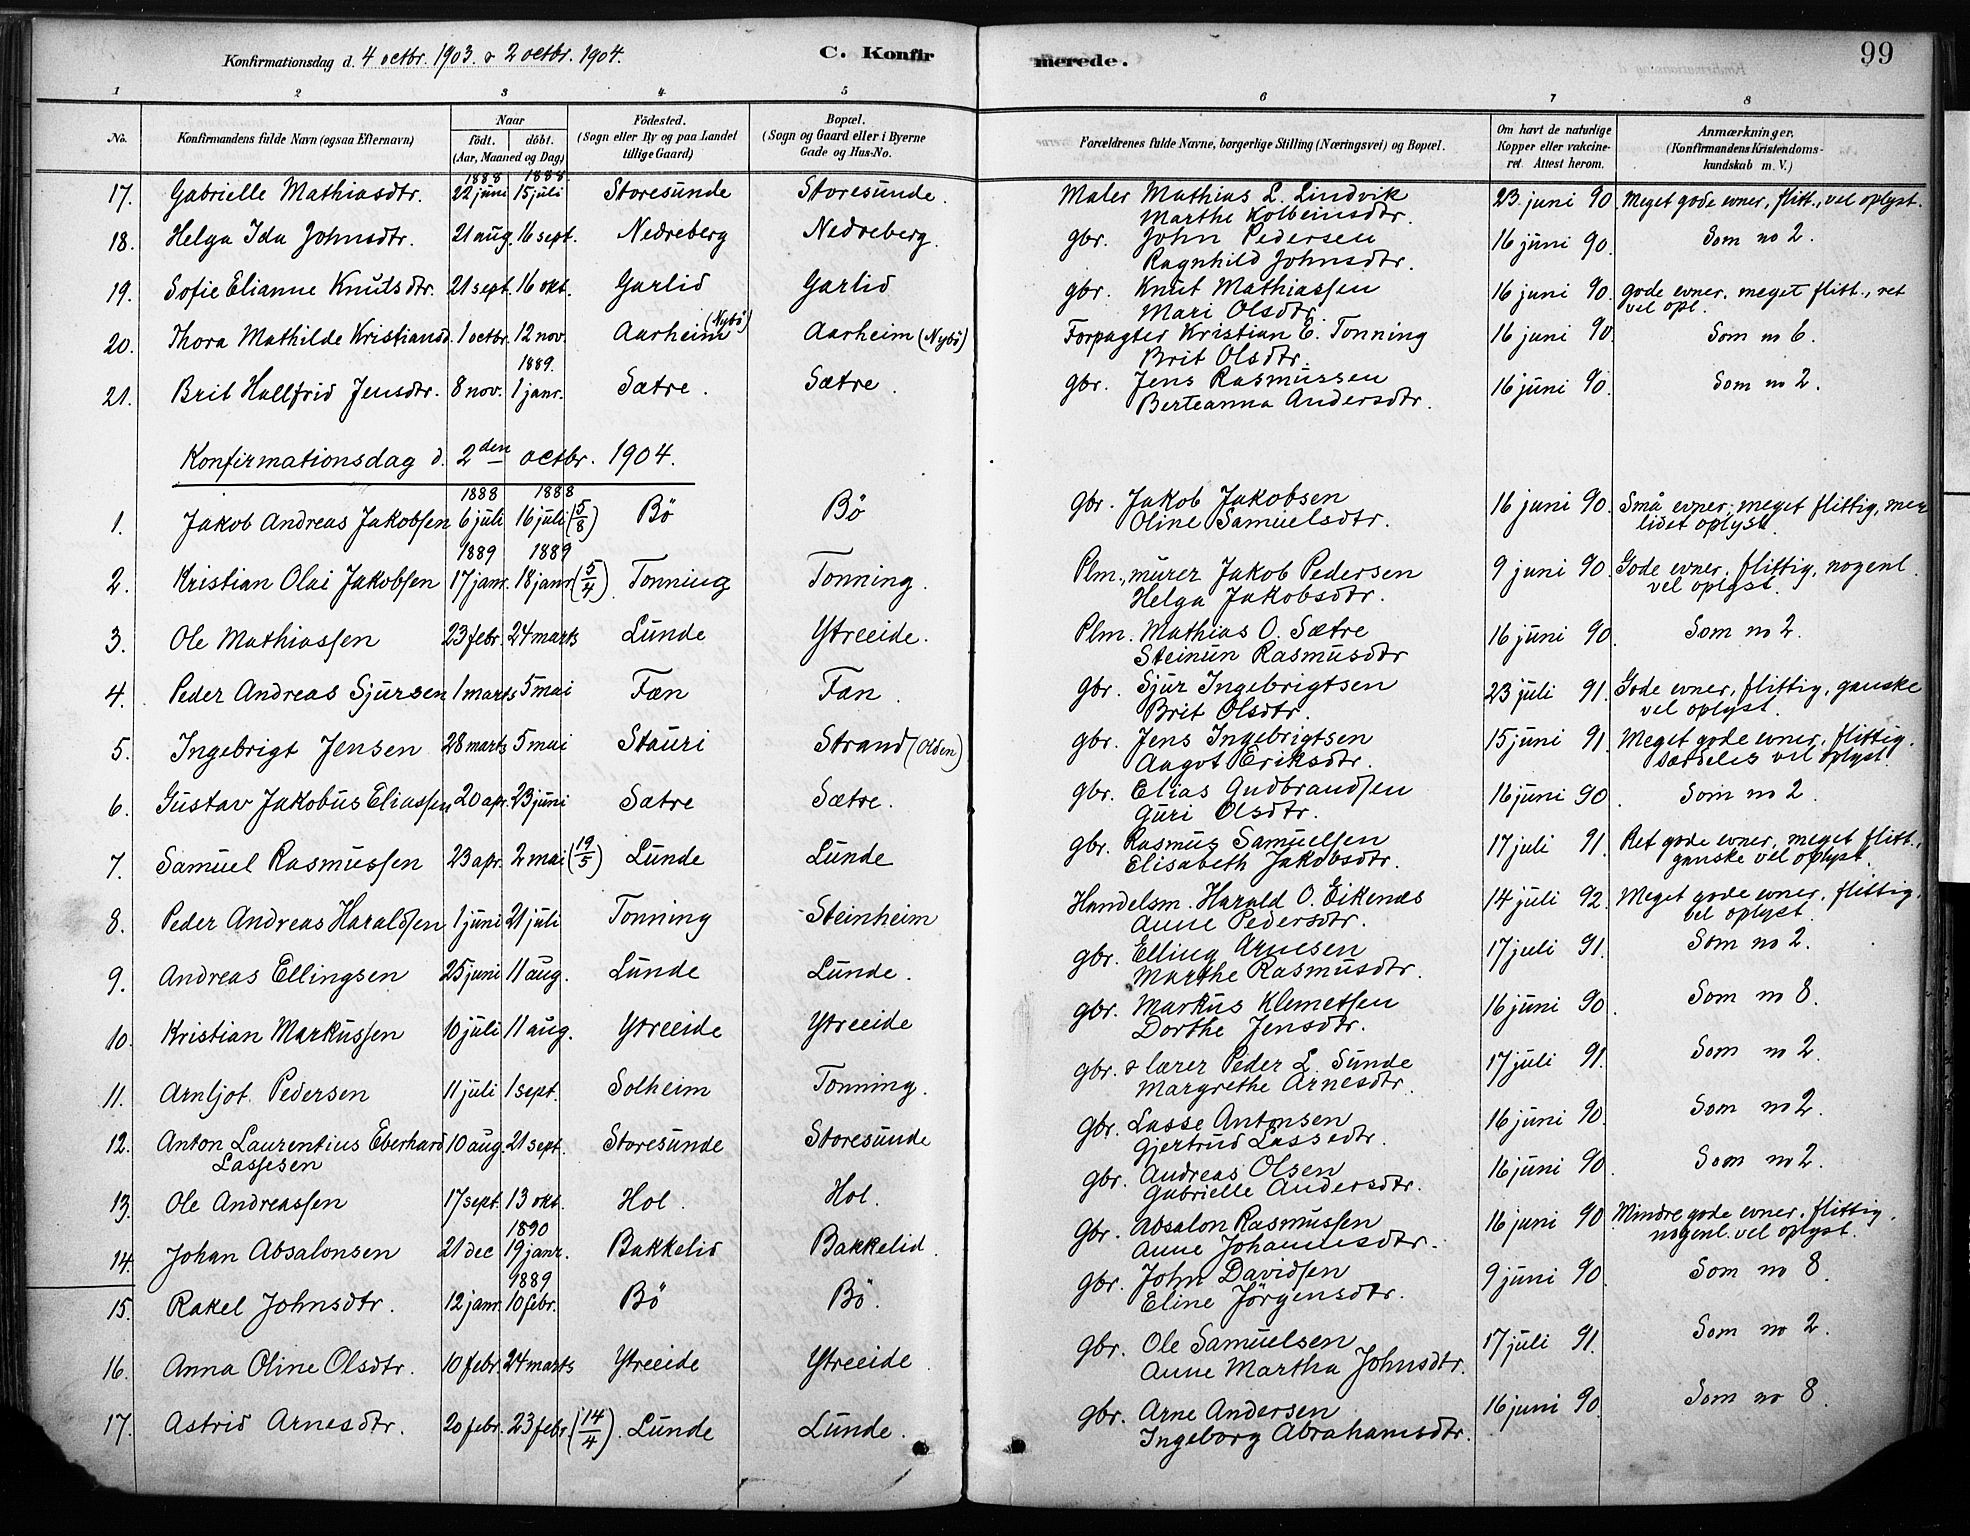 Konfirmationsdag d. 4 octbr. 1903 & 2 octbr. 1904.
C. Konfirmerede.
99
1 2 3 4 5 6 7 8
No. Konfirmandens fulde Navn (ogsaa Efternavn) Naar født. døbt. (Aar, Maaned og Dag) Fødested. (Sogn eller By og paa Landet tillige Gaard) Bopæl. (Sogn og Gaard eller i Byerne Gade og Hus-No.) Forældrenes fulde Navne, borgerlige Stilling (Næringsvei) og Bopæl. Om havt de naturlige Kopper eller vakcineret. Attest herom. Anmærkninger. (Konfirmandens Kristendomskundskab m. V.)
1888 1888
17. Gabrielle Mathiasdtr. 22 juni 15 juli Storesunde Storesunde. Maler Mathias L. Lindvik 23 juni 90. Meget gode evner, flitt., vel oplyst.
Marthe Kolbeinsdtr.
18. Helga Ida Johnsdtr. 21 aug. 16 sept. Nedreberg Nedreberg. gbr. John Pedersen 16 juni 90. Som no 2.
Ragnhild Johnsdtr.
19. Sofie Elianne Knutsdtr. 21 sept. 16 okt. Garlid Garlid gbr. Knut Mathiassen 16 juni 90. gode evner. meget flitt., ret
Mari Olsdtr. vel opl.
20. Thora Mathilde Kristiansd. 1 octbr. 12 nov. Aarheim (Nybø) Aarheim (Nybø) Forpagter Kristian E. Tonning 16 juni 90. Som no 6.
Brit Olsdtr.
1889.
21. Brit Hallfrid Jensdtr. 8 nov. 1 janr. Sætre. Sætre. gbr. Jens Rasmussen 16 juni 90. Som no 2.
Berteanna Andersdtr.
Konfirmationsdag d. 2den octbr. 1904.
1888 1888
1. Jakob Andreas Jakobsen 6 juli 16 juli (5/8) Bö Bö gbr. Jakob Jakobsen 16 juni 90. Små evner, meget flittig, men
Oline Samuelsdtr. lidet oplyst.
1889 1889
2. Kristian Olai Jakobsen 17 janr. 18 janr. (5/4). Tonning Tonning. Plm., murer Jakob Pedersen 9 juni 90. Gode evner, flittig, nogenl.
Helga Jakobsdtr. vel oplyst.
3. Ole Mathiassen 23 febr. 24 marts Lunde Ytreeide. Plm. Mathias O. Sætre 16 juni 90. Som no 2.
Steinun Rasmusdtr
4. Peder Andreas Sjursen 1 marts 5 mai Fæn Fæn. gbr. Sjur Ingebrigtsen 23 juli 91. Gode evner, flittig, ganske
Brit Olsdtr. vel oplyst.
5. Ingebrigt Jensen 28 marts 5 mai Stauri Strand (Olden) gbr. Jens Ingebrigtsen 15 juni 91. Meget gode evner, flittig.
Angot Eriksdtr. særdeles vel oplyst.
6. Gustav Jakobus Eliassen 20 apr. 23 juni Sætre Sætre. gbr. Elias Gudbrandsen 16 juni 90. Som no 2.
Guri Olsdtr.
7. Samuel Rasmussen 23 apr. 2 mai (19/5) Lunde Lunde gbr. Rasmus Samuelsen 17 juli 91. Ret gode evner, meget flitt.,
Elisabeth Jakobsdtr. ganske vel oplyst.
8. Peder Andreas Haraldsen 1 juni 21 juli Tonning Steinheim Handelsm. Harald O. Eikenæs 14 juli 92. Meget gode evner, flittig,
Anne Pedersdtr. vel oplyst.
9. Andreas Ellingsen 25 juni 11 aug. Lunde Lunde. gbr. Elling Arnesen 17 juli 91. Som no 2.
Marthe Rasmusdtr.
10. Kristian Markussen 10 juli 11 aug. Ytreeide Ytreeide gbr. Markus Klemetsen 16 juni 90. Som no 8.
Dorthe Jensdtr.
11. Arnljot Pedersen 11 juli 1 sept. Solheim Tonning. gbr. & lærer Peder L. Sunde 17 juli 91. Som no 2.
Margrethe Arnesdtr.
12. Anton Laurentius Eberhard 10 aug. 21 sept. Storesunde Storesunde gbr. Lasse Antonsen 16 juni 90. Som no 2.
Lassesen Gjertrud Lassedtr.
13. Ole Andreassen 17 sept. 13 okt. Hol. Hol. gbr. Andreas Olsen 16 juni 90. Som no 2.
Gabrielle Andersdtr.
1890
14. Johan Absalonsen 21 dec 19 janr. Bakkelid Bakkelid. gbr. Absalon Rasmussen 16 juni 90. Mindre gode evner, flittig,
Anne Johannesdtr. nogenl. vel oplyst.
1889
15. Rakel Johnsdtr. 12 janr. 10 febr. Bö Bö. gbr. John Davidsen 9 juni 90. Som no 8.
Eline Jörgensdtr.
16. Anna Oline Olsdtr. 10 febr. 24 marts Ytreeide Ytreeide. gbr. Ole Samuelsen 17 juli 91. Som no 2.
Anne Martha Johnsdtr.
17. Astrid Arnesdtr. 20 febr. 23 febr. (14/4). Lunde Lunde. gbr. Arne Andersen 16 juni 90. Som no 8.
Ingeborg Abrahamsdtr.